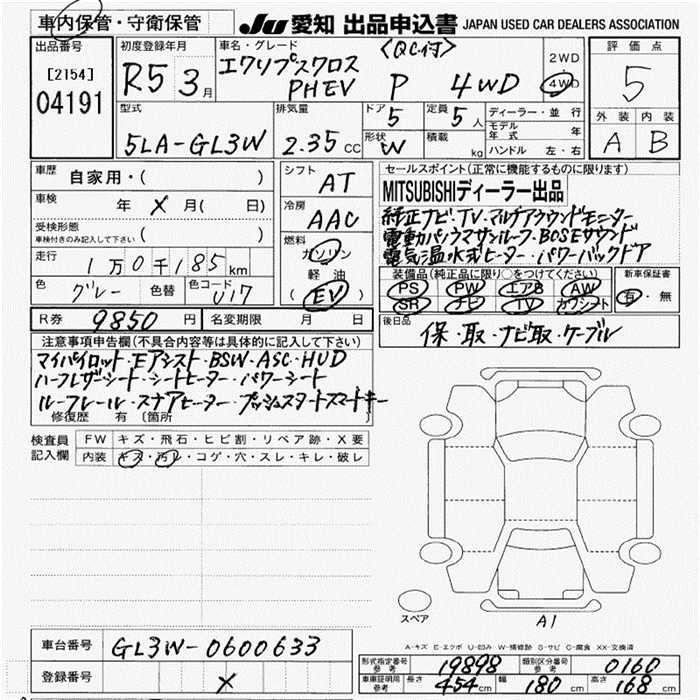 車内保管・守衛保管
JU 愛知 出品申込書 JAPAN USED CAR DEALERS ASSOCIATION
出品番号 初度登録年月 車名・グレード <QC付> 2WD 評価点
[2154] R5 3月 エクリプスクロス 4WD 5
04191 PHEV P 4WD
型式 排気量 ドア 5 定員 5人 ディーラー・並行 外装 内装
5LA-GL3W 2.35cc 形状 W 積載 kg モデル年式 年 A B
ハンドル 左・右
車歴 自家用・( ) シフト AT セールスポイント(正常に機能するものに限ります)
車検 年 X 月( 日) 冷房 AAC MITSUBISHIディーラー出品
受検形態 純正ナビ・TV・マルチアラウンドモニター
車検付きのみ記入して下さい ( ) 燃料 ガソリン 電動パノラマサンルーフ・BOSEサウンド
走行 1万0千185km 軽油 電気温水式ヒーター・パワーバックドア
色 グレー 色替 色コード U17 EV 装備品(純正品に限り○をつけてください) 新車保証書
PS PW エアB AW 有・無
SR ナビ TV カワシート
R券 9850円 名変期限 月 日 後日品 保・取・ナビ取・ケーブル
注意事項申告欄(不具合内容等は具体的に記入して下さい)
マイパイロット・Eアシスト・BSW・ASC・HUD
ハーフレザーシート・シートヒーター・パワーシート
ルーフレール・ステアヒーター・プッシュスタートスマートキー
修復歴 有 〔箇所 〕
検査員 FW キズ・飛石・ヒビ割・リペア跡・X要
記入欄 内装 キズ・汚レ・コゲ・穴・スレ・キレ・破レ
スペア A1
車台番号 GL3W-0600633
A-キズ E-エクボ U-凹み W-補修跡 S-サビ C-腐食 XX-交換済
登録番号 X
形式指定番号 参考 19898 類別区分番号 参考 0160
車庫証明用 参考 長さ 454cm 幅 180cm 高さ 168cm